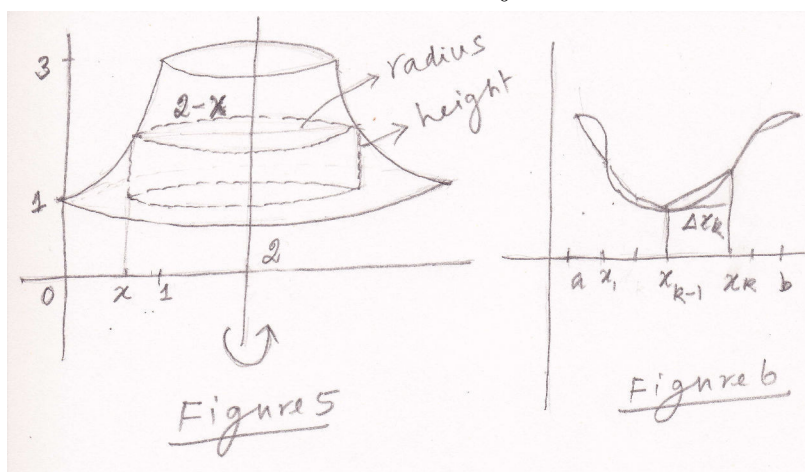 3
2-x
radius
height
1
2
0
x
1
Figure 5
Δxₖ
a
x₁
xₖ₋₁
xₖ
b
Figure 6